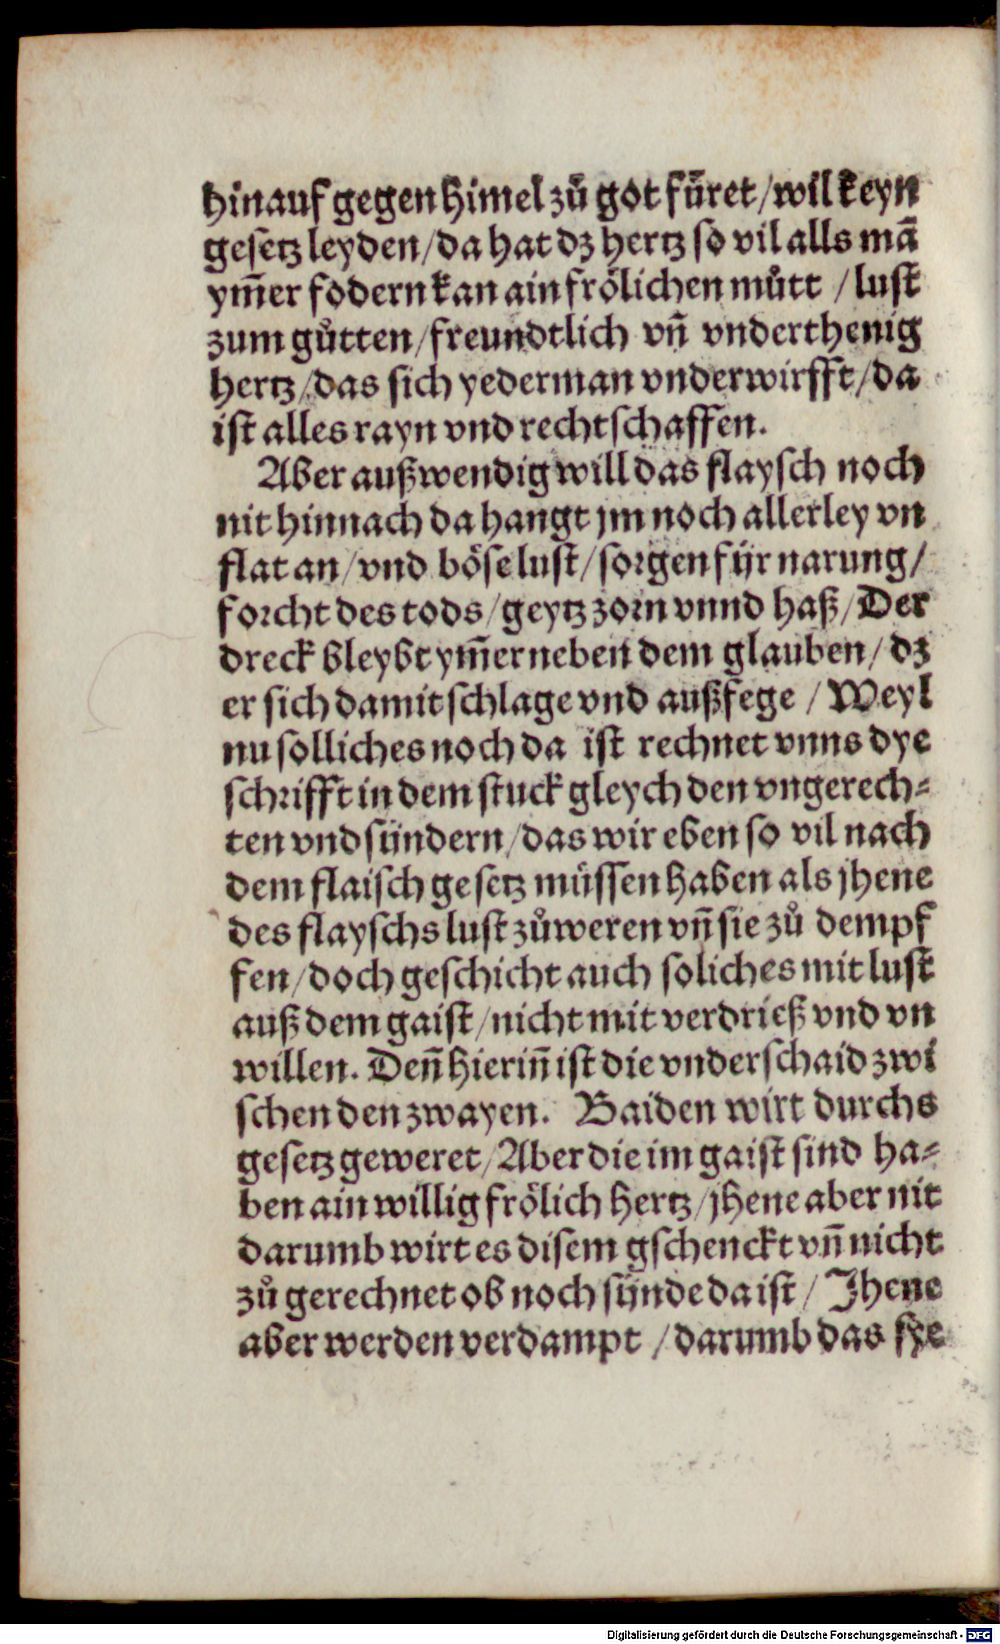 hinauf gegen himel zů got füret / wil keyn
gesetz leyden / da hat dz hertz so vil alls mā
ym̄er fodern kan ain frölichen můtt / lust
zum gůtten / freundtlich vn̄ vnderthenig
hertz / das sich yederman vnderwirfft / da
ist alles rayn vnd rechtschaffen.
Aber außwendig will das flaysch noch
nit hinnach da hangt jm noch allerley vn
flat an / vnd böse lust / sorgen für narung /
forcht des tods / geytz zorn vnnd haß / Der
dreck bleybt ym̄er neben dem glauben / dz
er sich damit schlage vnd außfege / Weyl
nu solliches noch da ist rechnet vnns dye
schrifft in dem stuck gleych den vngerech⸗
ten vnd sündern / das wir eben so vil nach
dem flaisch gesetz müssen haben als jhene
des flayschs lust zůweren vn̄ sie zů dempf
fen / doch geschicht auch soliches mit lust
auß dem gaist / nicht mit verdrieß vnd vn
willen. Den̄ hierin̄ ist die vnderschaid zwi
schen den zwayen. Baiden wirt durchs
gesetz geweret / Aber die im gaist sind ha⸗
ben ain willig frölich hertz / jhene aber nit
darumb wirt es disem gschenckt vn̄ nicht
zů gerechnet ob noch sünde da ist / Jhene
aber werden verdampt / darumb das sye
Digitalisierung gefördert durch die Deutsche Forschungsgemeinschaft - DFG